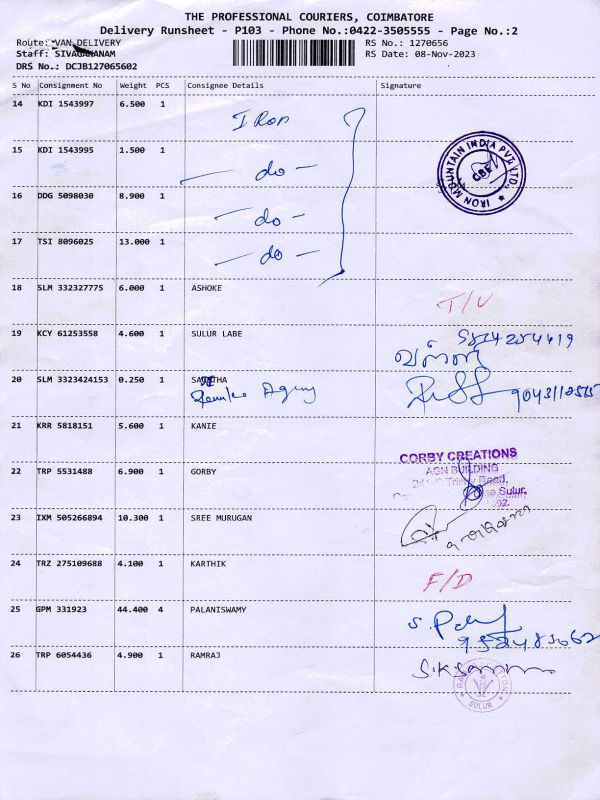 THE PROFESSIONAL COURIERS, COIMBATORE
Delivery Runsheet - P103 - Phone No.:0422-3505555 - Page No.:2
Route: VAN DELIVERY
RS No.: 1270656
Staff: SIVAGNANAM
RS Date: 08-Nov-2023
DRS No.: DCJB127065602
S No Consignment No Weight PCS Consignee Details Signature
14 KDI 1543997 6.500 1
Iron
15 KDI 1543995 1.500 1
- do -
IRON MOUNTAIN INDIA PVT. LTD.
CBE
16 DDG 5098030 8.900 1
- do -
17 TSI 8096025 13.000 1
- do -
18 SLM 332327775 6.000 1 ASHOKE
19 KCY 61253558 4.600 1 SULUR LABE
20 SLM 3323424153 0.250 1
Agency
21 KRR 5818151 5.600 1 KANIE
CORBY CREATIONS
AGN BUILDING
Road,
22 TRP 5531488 6.900 1 GORBY
Sulur,
23 IXM 505266894 10.300 1 SREE MURUGAN
24 TRZ 275109688 4.100 1 KARTHIK
F/D
25 GPM 331923 44.400 4 PALANISWAMY
26 TRP 6054436 4.900 1 RAMRAJ
SULUR